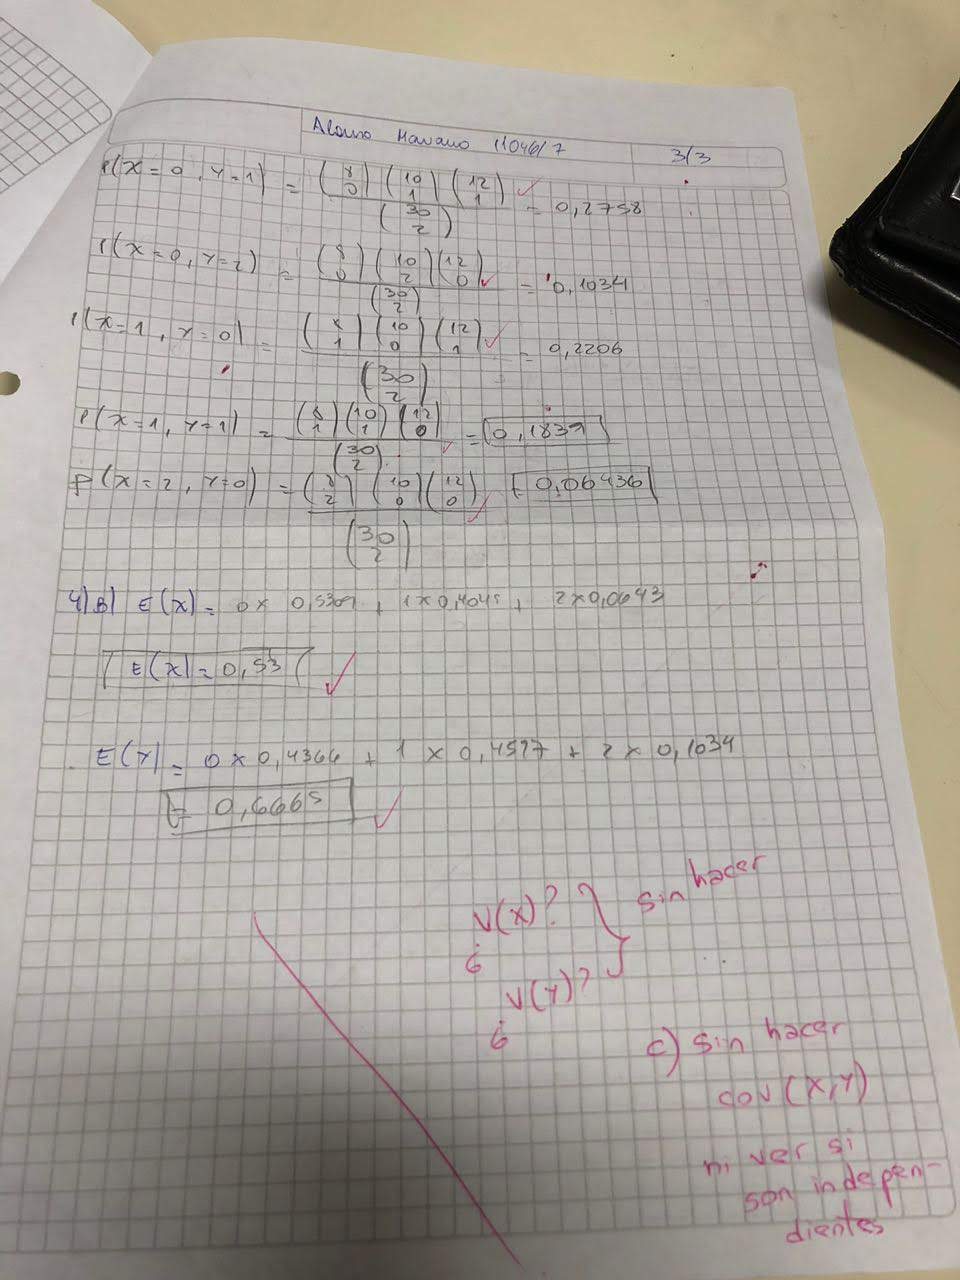 Alonso Mariano 11046/7 3/3
P(X=0, Y=1) = (8 0) (10 1) (12 1) / (30 2) = 0,2758
P(X=0, Y=2) = (8 0) (10 2) (12 0) / (30 2) = 0,1034
P(X=1, Y=0) = (8 1) (10 0) (12 1) / (30 2) = 0,2206
P(X=1, Y=1) = (8 1) (10 1) (12 0) / (30 2) = 0,1839
P(X=2, Y=0) = (8 2) (10 0) (12 0) / (30 2) = 0,06436
4) B) E(X) = 0 x 0,5309 + 1 x 0,4045 + 2 x 0,0643
E(X) = 0,53
E(Y) = 0 x 0,4366 + 1 x 0,4597 + 2 x 0,1034
= 0,6665
¿V(X)?
¿V(Y)?
} sin hacer
c) sin hacer
cov (X,Y)
ni ver si
son indepen-
dientes